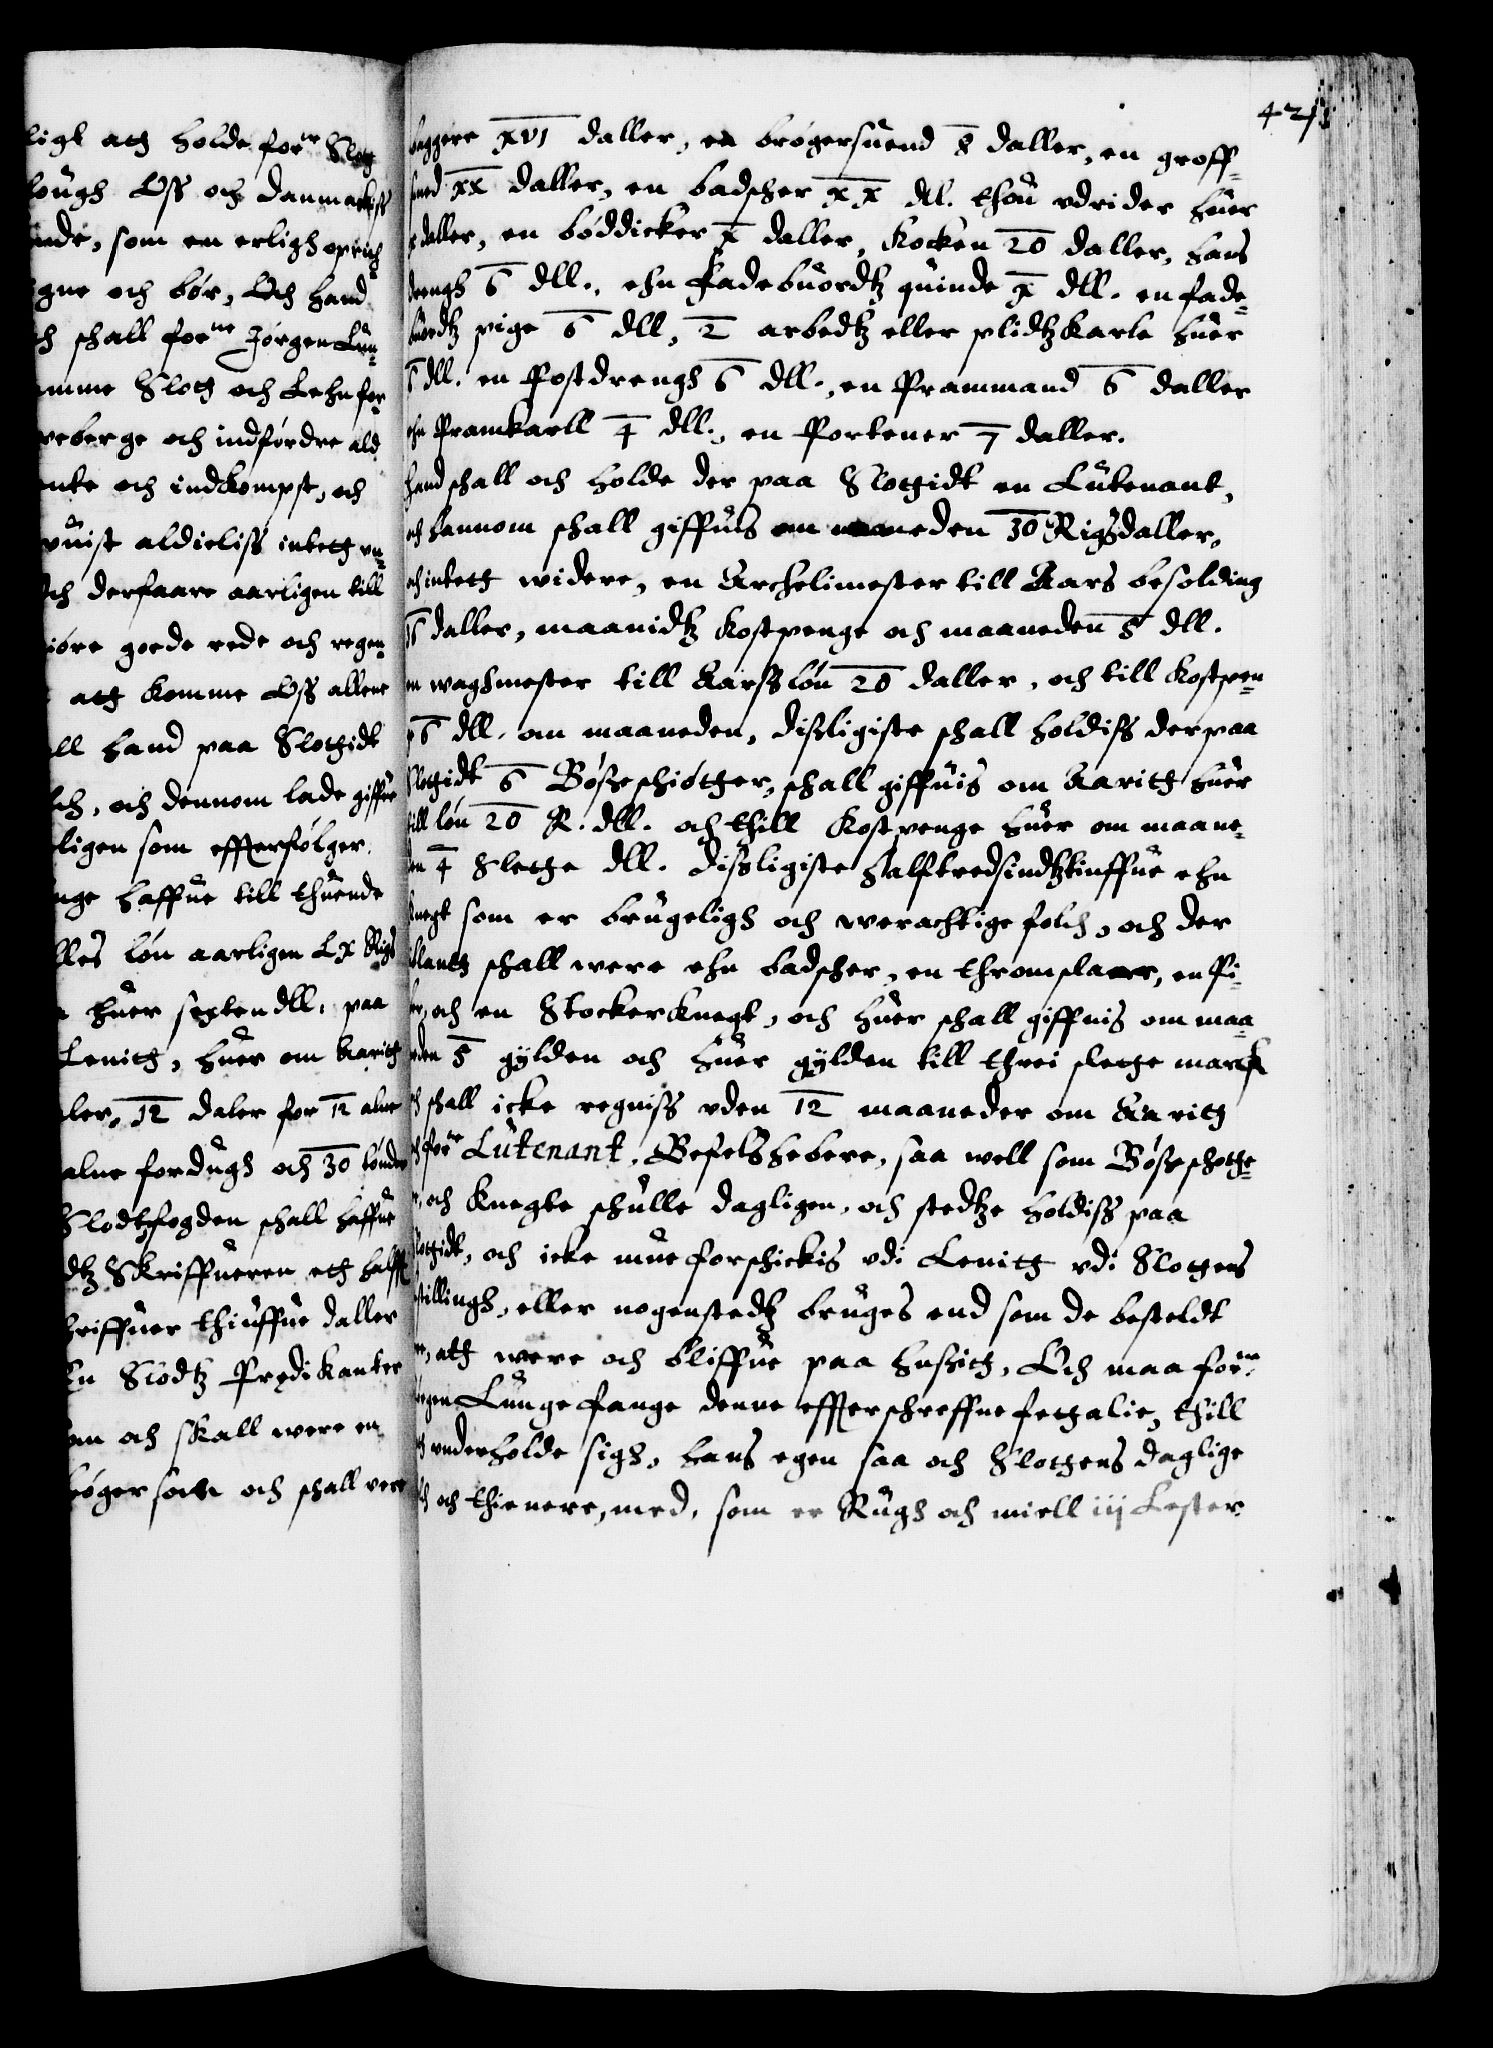 ligt att holde forne Slott
lough Oss och Danmarckis
unde, som en erligh oprich-
egne och bør, Och hand
ch schall forne Jørgen Lun-
amme Slott och Lehn for-
reberge och indfordre ald
ente och indkompst, och
vuist aldieliss intett un-
Och derfaare aarligen till
giøre goede rede och regen-
att komme Oss allene
all hand paa Slottidt
lch, och dennom lade giffue
ligen som effterfølger.
nge haffue till thuende
lles løn aarligen LX Rigs
huer sexten dll. paa
Lenitt, huer om Aaritt
aler, 12 daler for 12 alne
alne fordugh och 30 tønder
Slodtzfogden schall haffue
dtz Skriffueren ett halff
hriffuer thiuffue daller
En Slodtz Predikanter
om och skall were en
bøgersom och schall vere
421
baggere XVI daller, en brøgersuend 8 daller, en groff-
smed XX daller, en badscher XX dll. thou udrider huer
daller, en bøddicker X daller, Kocken 20 daller, hans
drengh 6 dll., ehn Fadebuordtz quinde X dll. en fade-
buordtz pige 6 dll, 2 arbedtz eller slidtzkarle huer
6 dll. en Postdrengh 6 dll., en Prammand 6 daller
ehn Pramkarll 4 dll., en Portener 7 daller.
Hand schall och holde der paa Slottidt en Lutenant,
och hannom schall giffuis om maaneden 30 Rigsdaller,
och intett widere, en Archelimester till Aars besolding
daller, maanidtz kostpenge och maaneden 8 dll.
en waghmester till Aarsløn 20 daller, och till kostpen-
ge 6 dll. om maaneden, disligiste schall holdiss derpaa
Slottidt 6 Bøsseschiøtter, schall giffuis om Aaritt huer
till løn 20 R. dll. och thill kostpenge huer om maane-
den 4 Slette dll. disligiste halfftredsindtztiuffue ehn
knegt som er brugeligh och werachtige folch, och der
iblantt schall were ehn badscher, en thromslaare, en Pi-
ber, och en Stockerknegt, och huer schall giffuis om maa-
neden 5 gylden och huer gylden till threi slette marck
och schall icke regniss uden 12 maaneder om Aaritt
och forne Lutenant, Befelshebere, saa well som Bøsseschøtte-
re, och knegte schulle dagligen, och stedtze holdiss paa
Slottidt, och icke mue forschickis udi Lenitt udi Slottens
bestillingh, eller nogenstedtz bruges end som de besteldt
ere, att were och bliffue paa hussitt, Och maa forne
Jørgen Lunge fange denne effterschreffne fettalie, thill
att underholde sigh, hans egen saa och Slottens daglige
folch och thienere, med, som er Rugh och miell iij Lester